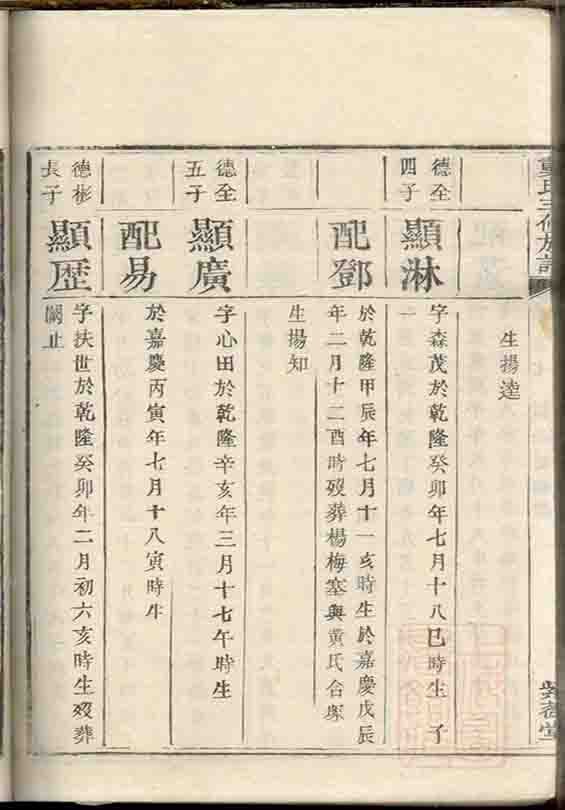 氏三修族譜
紫荊堂
生揚達
德全
四子
顯淋
字森茂於乾隆癸卯年七月十八巳時生 子
一
配鄧
於乾隆甲辰年七月十一亥時生於嘉慶戊辰
年二月十二酉時歿葬楊梅塞與黃氏合塚
生揚知
德全
五子
顯廣
字心田於乾隆辛亥年三月十七午時生
配易
於嘉慶丙寅年七月十八寅時生
德彬
長子
顯歷
字扶世於乾隆癸卯年二月初六亥時生歿葬
闕止